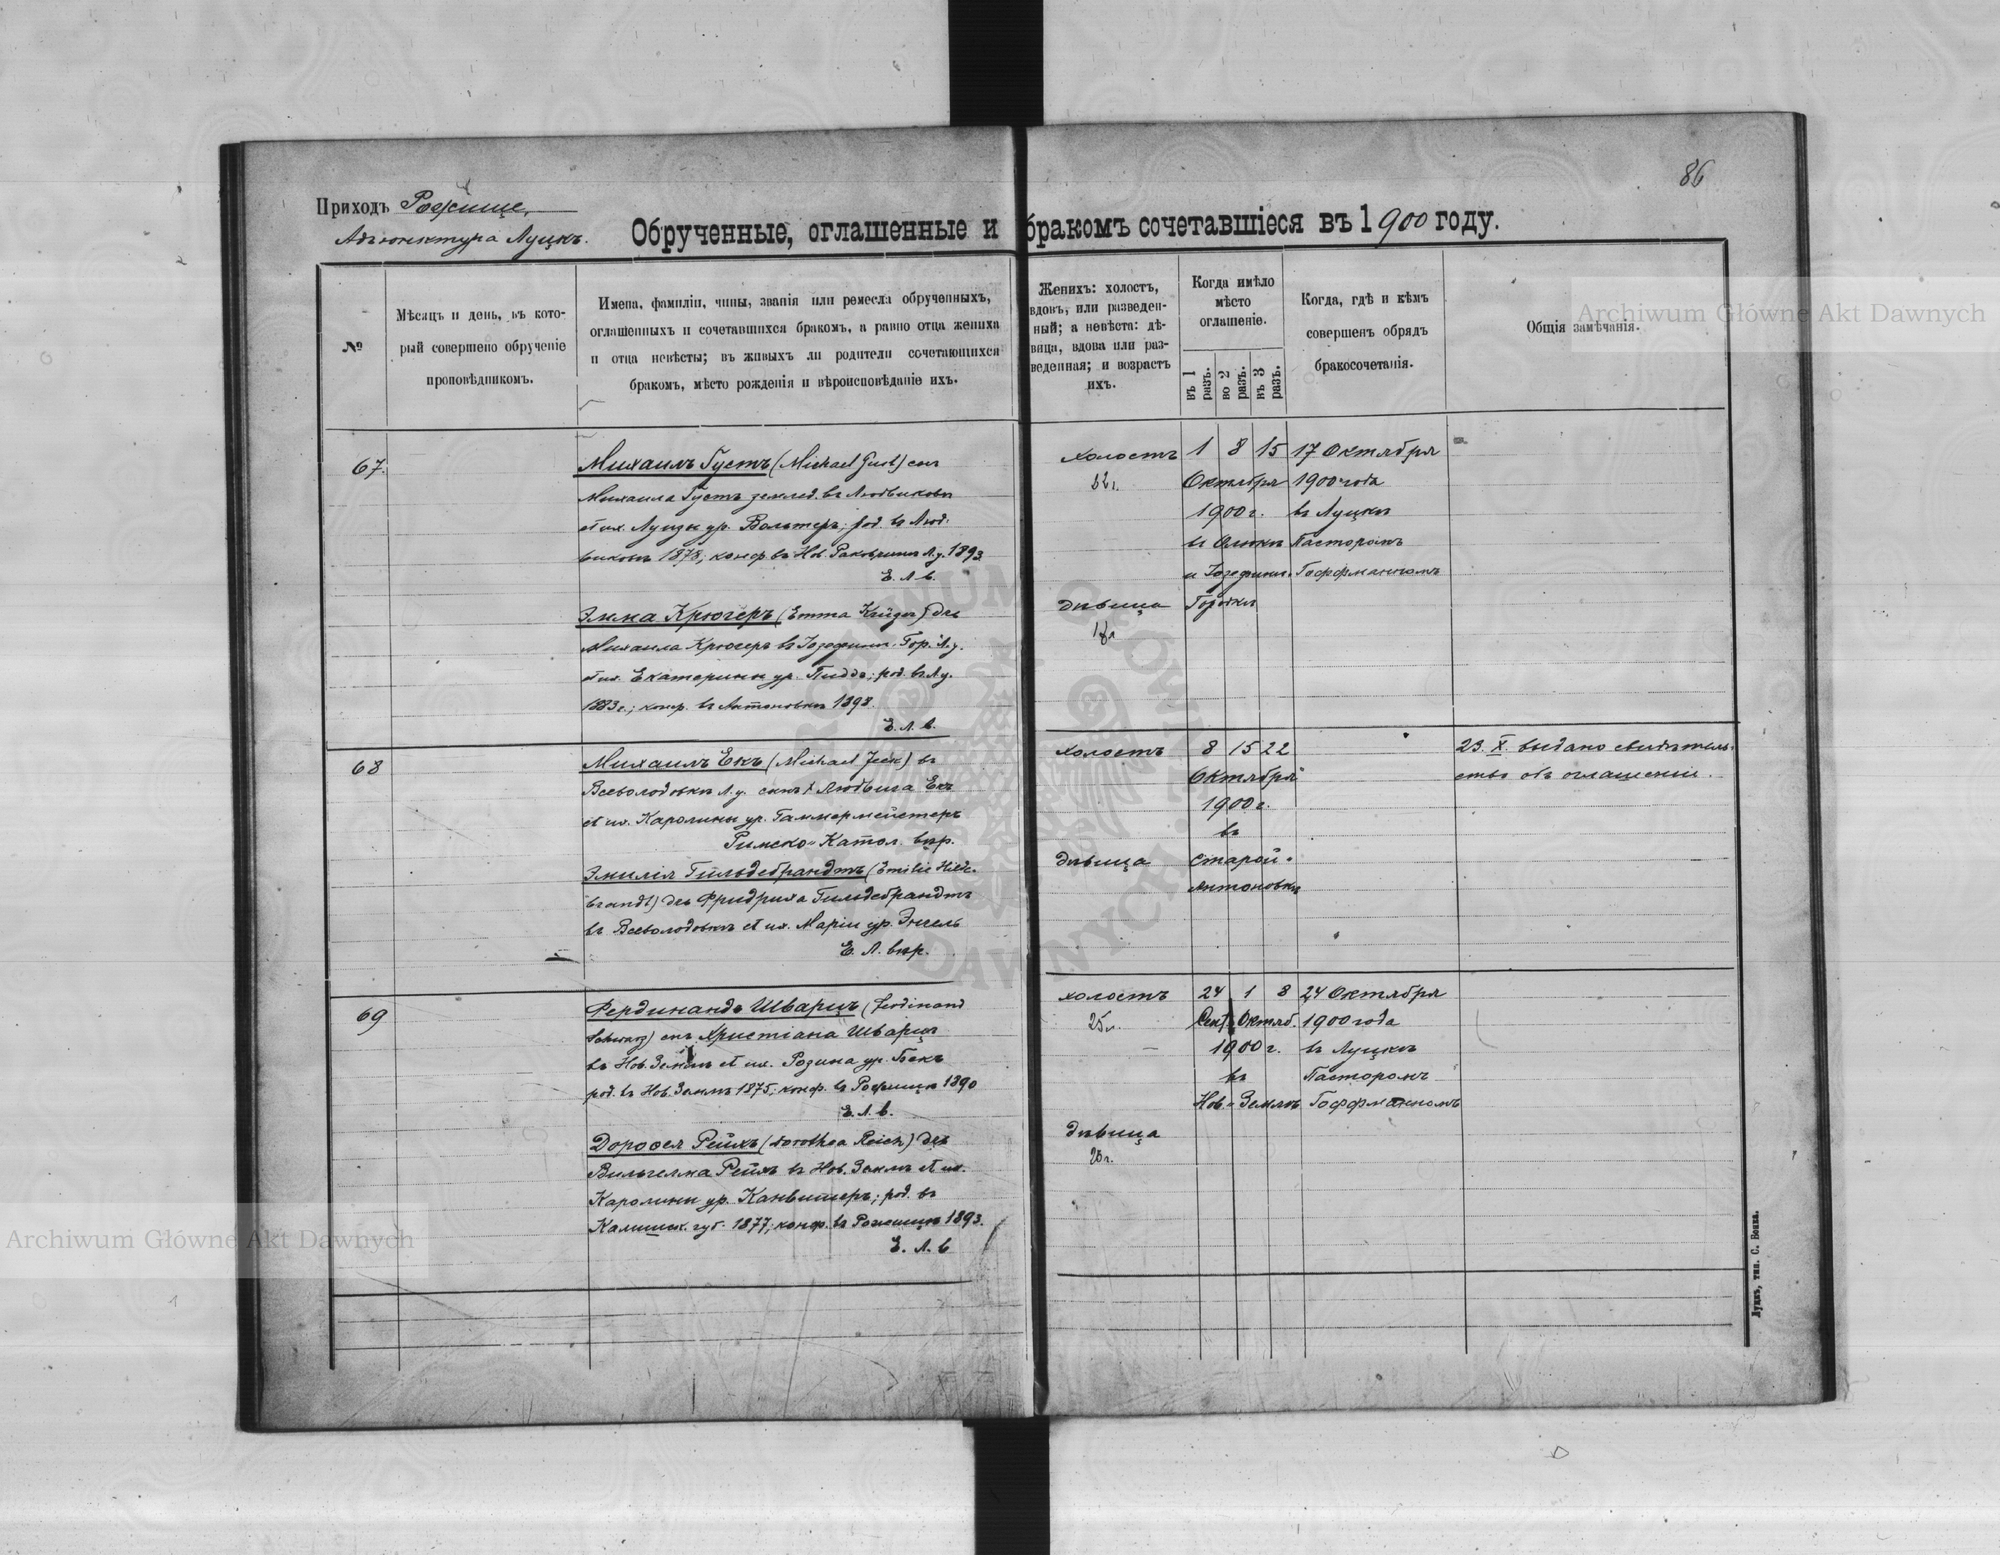 86
Приходъ Рожище,
Адъюнктура Луцкъ.
Обрученные, оглашенные и бракомъ сочетавшіеся въ 1900 году.
№
Мѣсяцъ и день, въ кото-
рый совершено обрученіе
проповѣдникомъ.
Имена, фамиліи, чины, званія или ремесла обрученныхъ,
оглашенныхъ и сочетавшихся бракомъ, а равно отца жениха
и отца невѣсты; въ живыхъ ли родители сочетающихся
бракомъ, мѣсто рожденія и вѣроисповѣданіе ихъ.
Женихъ: холостъ,
вдовъ, или разведен-
ный; а невѣста: дѣ-
вица, вдова или раз-
веденная; и возрастъ
ихъ.
Когда имѣло
мѣсто
оглашеніе.
въ 1 разъ.
во 2 разъ.
въ 3 разъ.
Когда, гдѣ и кѣмъ
совершенъ обрядъ
бракосочетанія.
Общія замѣчанія.
67.
Михаилъ Густъ (Michael Gust) снъ
Михаила Густъ землед. въ Людвиковѣ
и Луизы ур. Вальтеръ; род. въ Люд-
виковѣ 1878; конф. въ Нов. Раковщинѣ Л.у. 1893
Е. Л. в.
Эмма Крюгеръ (Emma Krüger) дчь
Михаила Крюгеръ въ Іозефин. Гор. Л.у.
Екатерины ур. Пиддъ; род. въ Л.у.
1883г.; конф. въ Антоновкѣ 1898.
Е. Л. в.
холостъ
22г.
дѣвица
18л
1 8 15
Октября
1900 г.
въ Олыкѣ
и Іозефин.
Горокѣ
17 Октября
1900 года
въ Луцкѣ
Пасторомъ
Гоффманномъ
68
Михаилъ Екъ (Michael Jeck) въ
Всеволодовкѣ Л.у. снъ † Людвига Екъ
Каролины ур. Гаммермейстеръ
Римско-Катол. вѣр.
Эмилія Гильдебрандтъ (Emilie Hilde-
brandt) дчь Фридриха Гильдебрандтъ
въ Всеволодовкѣ Маріи ур. Энгель
Е. Л. вѣр.
холостъ
дѣвица
8 15 22
Октября
1900 г.
въ
Старой-
Антоновкѣ
23. X. выдано свидѣтель-
ство объ оглашеніи.
69
Фердинандъ Шварцъ (Ferdinand
Schwarz) снъ Христіана Шварцъ
въ Нов. Землѣ Розина ур. Бекъ
род. въ Нов. Землѣ 1875; конф. въ Рожищѣ 1890
Е. Л. в.
Доротея Рейхъ (Dorothea Reich) дчь
Вильгелма Рейхъ въ Нов. Землѣ
Каролины ур. Канвишеръ; род. въ
Калишск. губ. 1877; конф. въ Рожищѣ 1893.
Е. Л. в
холостъ
25л.
дѣвица
24 1 8
Сент. Октяб.
1900 г.
въ
Нов.-Землѣ
24 Октября
1900 года
въ Луцкѣ
Пасторомъ
Гоффманномъ
Луцкъ, тип. С. Бонка.
Archiwum Główne Akt Dawnych
Archiwum Główne Akt Dawnych